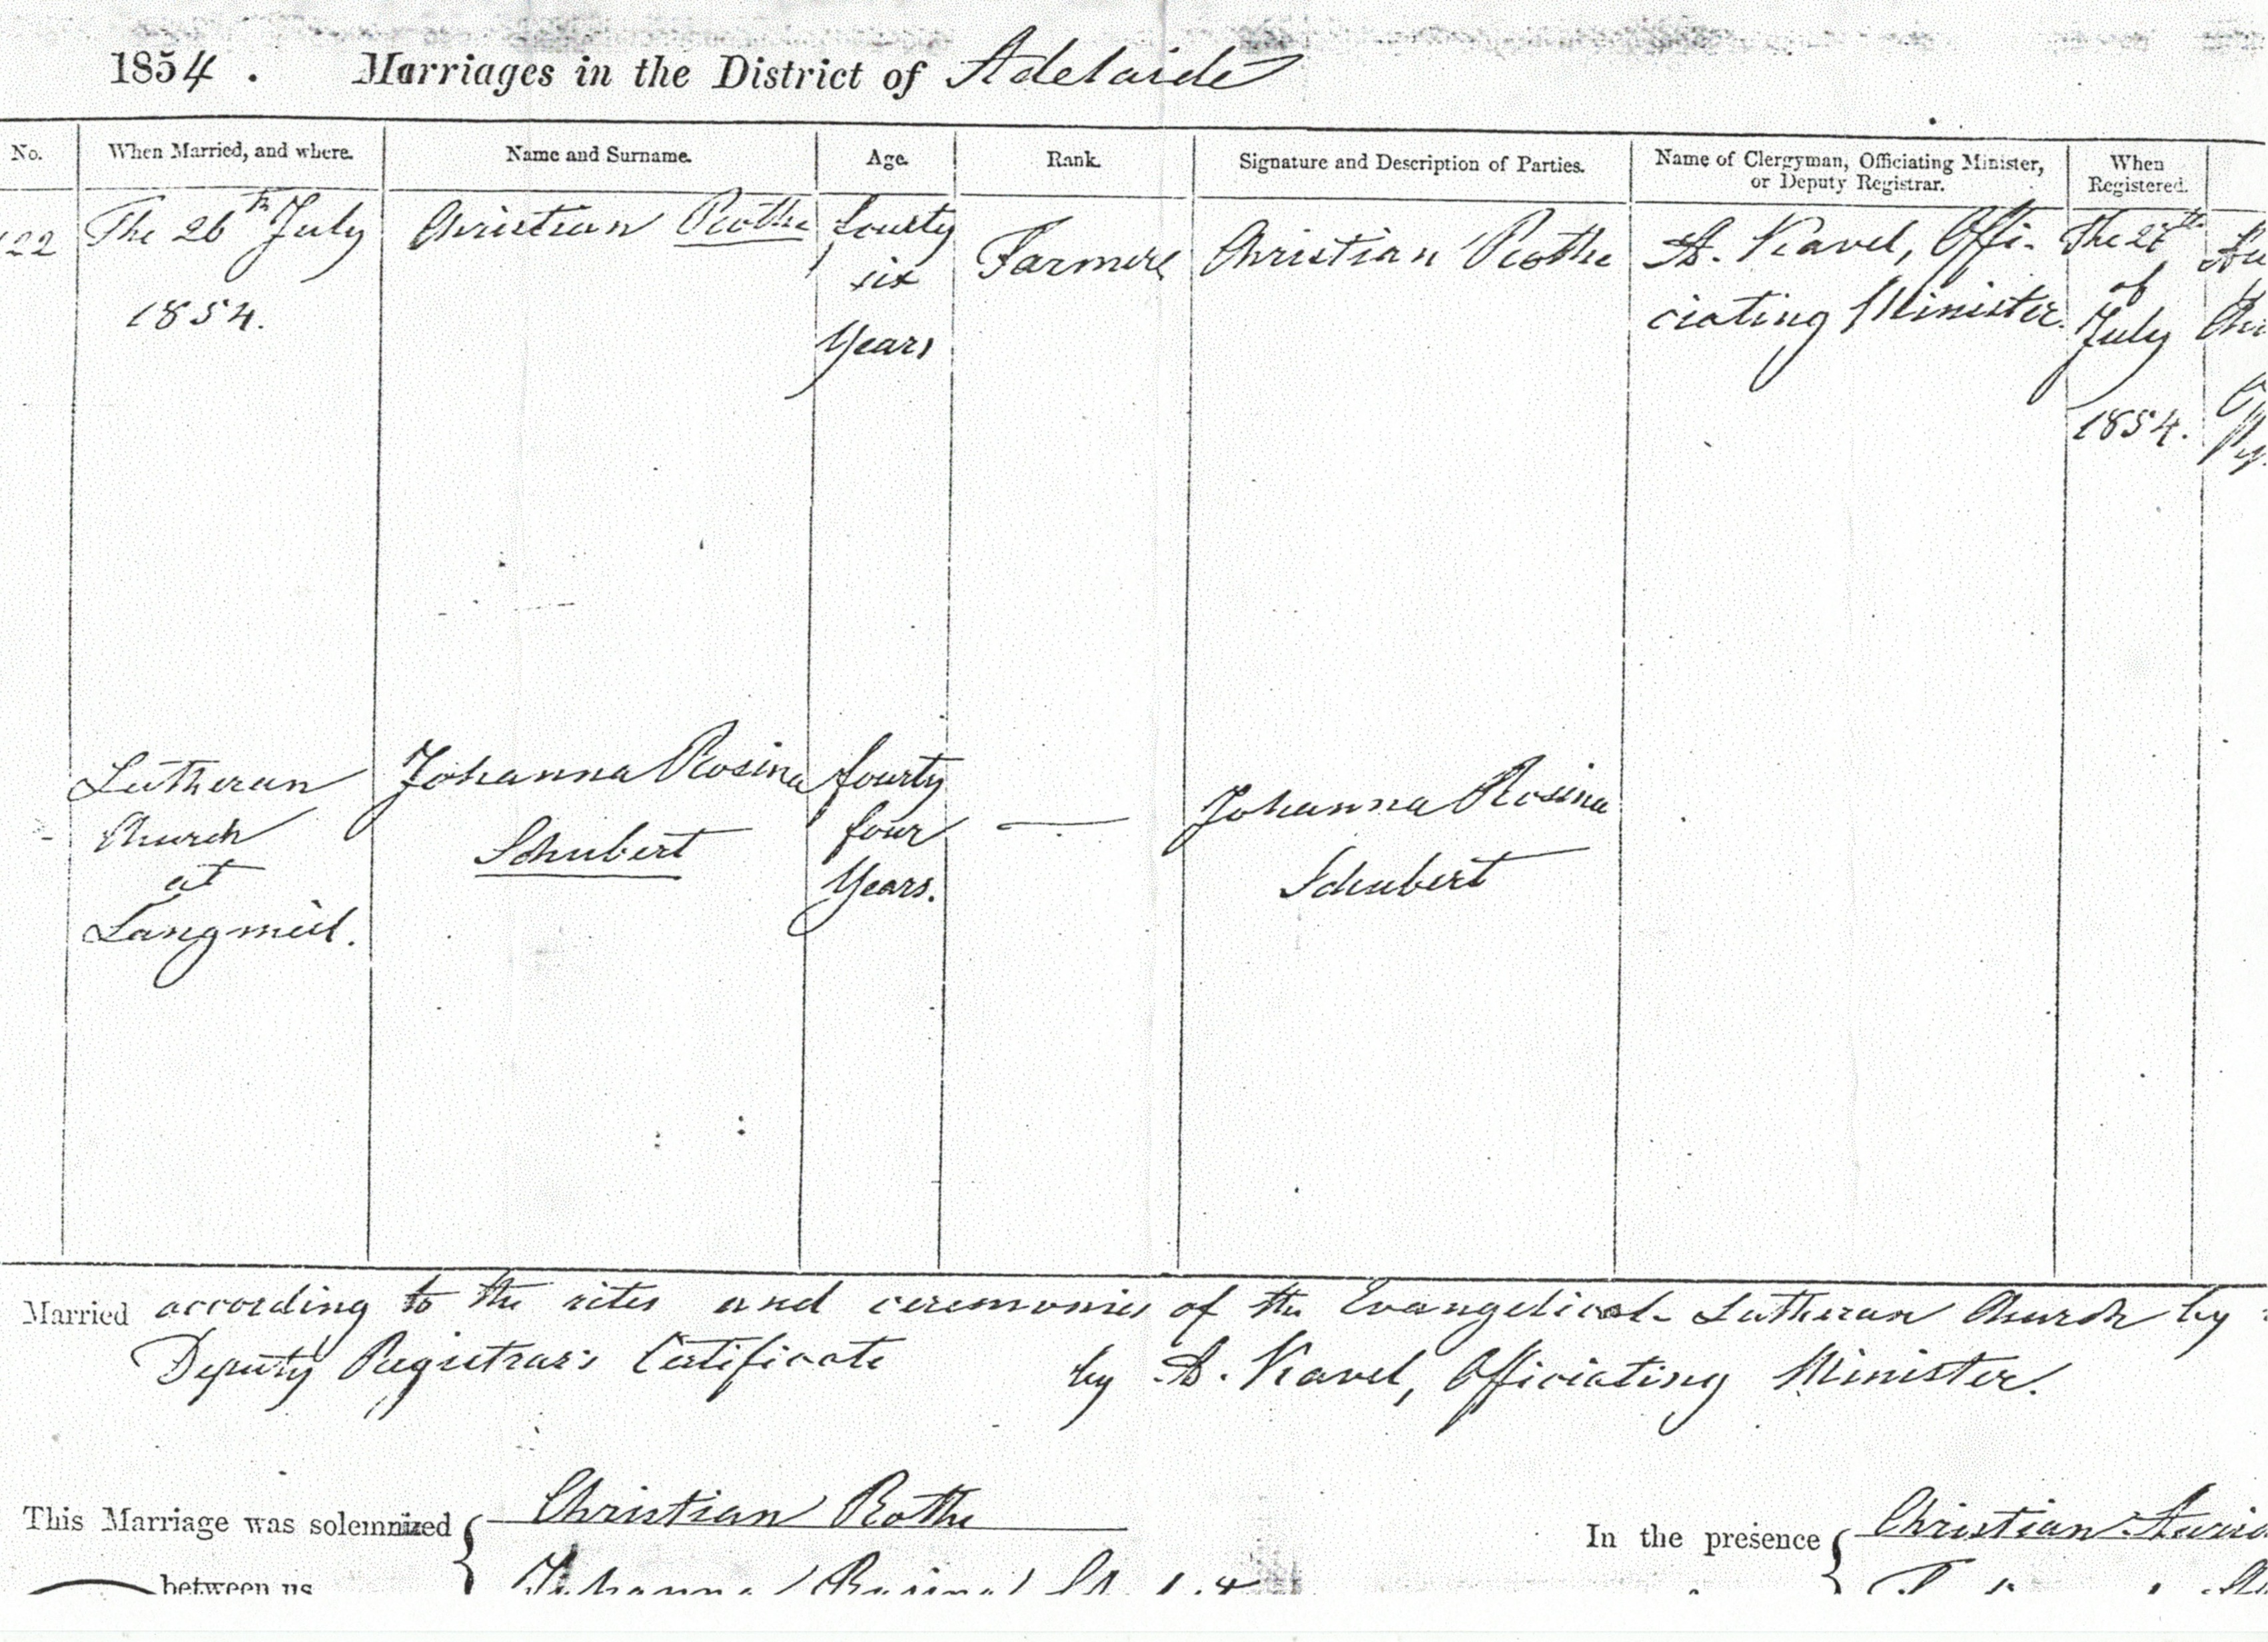 1854. Marriages in the District of Adelaide
No. When Married, and where. Name and Surname. Age. Rank. Signature and Description of Parties. Name of Clergyman, Officiating Minister, or Deputy Registrar. When Registered.
22
The 26th July
1854.
Christian Rothe
fourty
six
Years
Farmer
Christian Rothe
A. Kavel, Offi-
ciating Minister.
The 27th
of
July
1854.
Lutheran
Church
at
Langmeil.
Johanna Rosina
Schubert
fourty
four
Years.
—
Johanna Rosina
Schubert
Married according to the rites and ceremonies of the Evangelical-Lutheran Church by
Deputy Registrar's Certificate by A. Kavel, Officiating Minister.
This Marriage was solemnized
Christian Rothe
In the presence
Christian
between us
Johanna Rosina Schubert